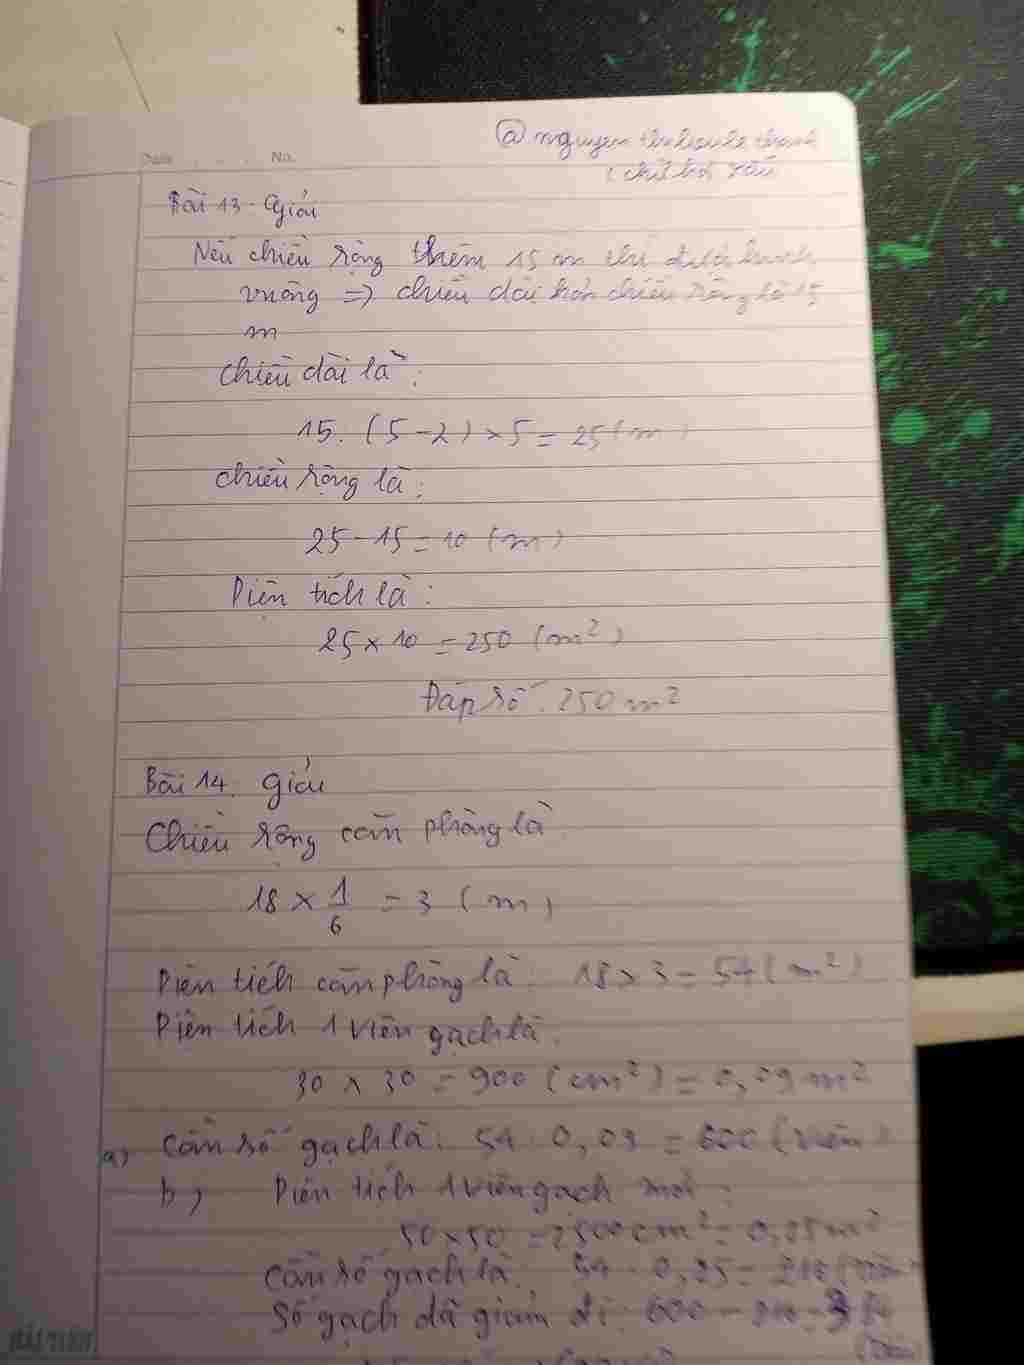 Date No.
@ nguyen
(chữ hơi xấu
Bài 13. Giải
Nếu chiều rộng thêm 15 m thì được hình
vuông => chiều dài hơn chiều rộng là 15
m
Chiều dài là:
15 : (5 - 2) × 5 = 25 (m)
Chiều rộng là:
25 - 15 = 10 (m)
Diện tích là:
25 × 10 = 250 (m²)
Đáp số: 250 m²
Bài 14. Giải
Chiều rộng căn phòng là:
18 × 1/6 = 3 (m)
Diện tích căn phòng là: 18 × 3 = 54 (m²)
Diện tích 1 viên gạch là:
30 × 30 = 900 (cm²) = 0,09 m²
a, Cần số gạch là: 54 : 0,09 = 600 (viên)
b, Diện tích 1 viên gạch mới:
50 × 50 = 2500 cm² = 0,25 m²
Cần số gạch là: 54 : 0,25 = 216 (viên)
Số gạch đã giảm đi: 600 - 216 = 384
(viên)